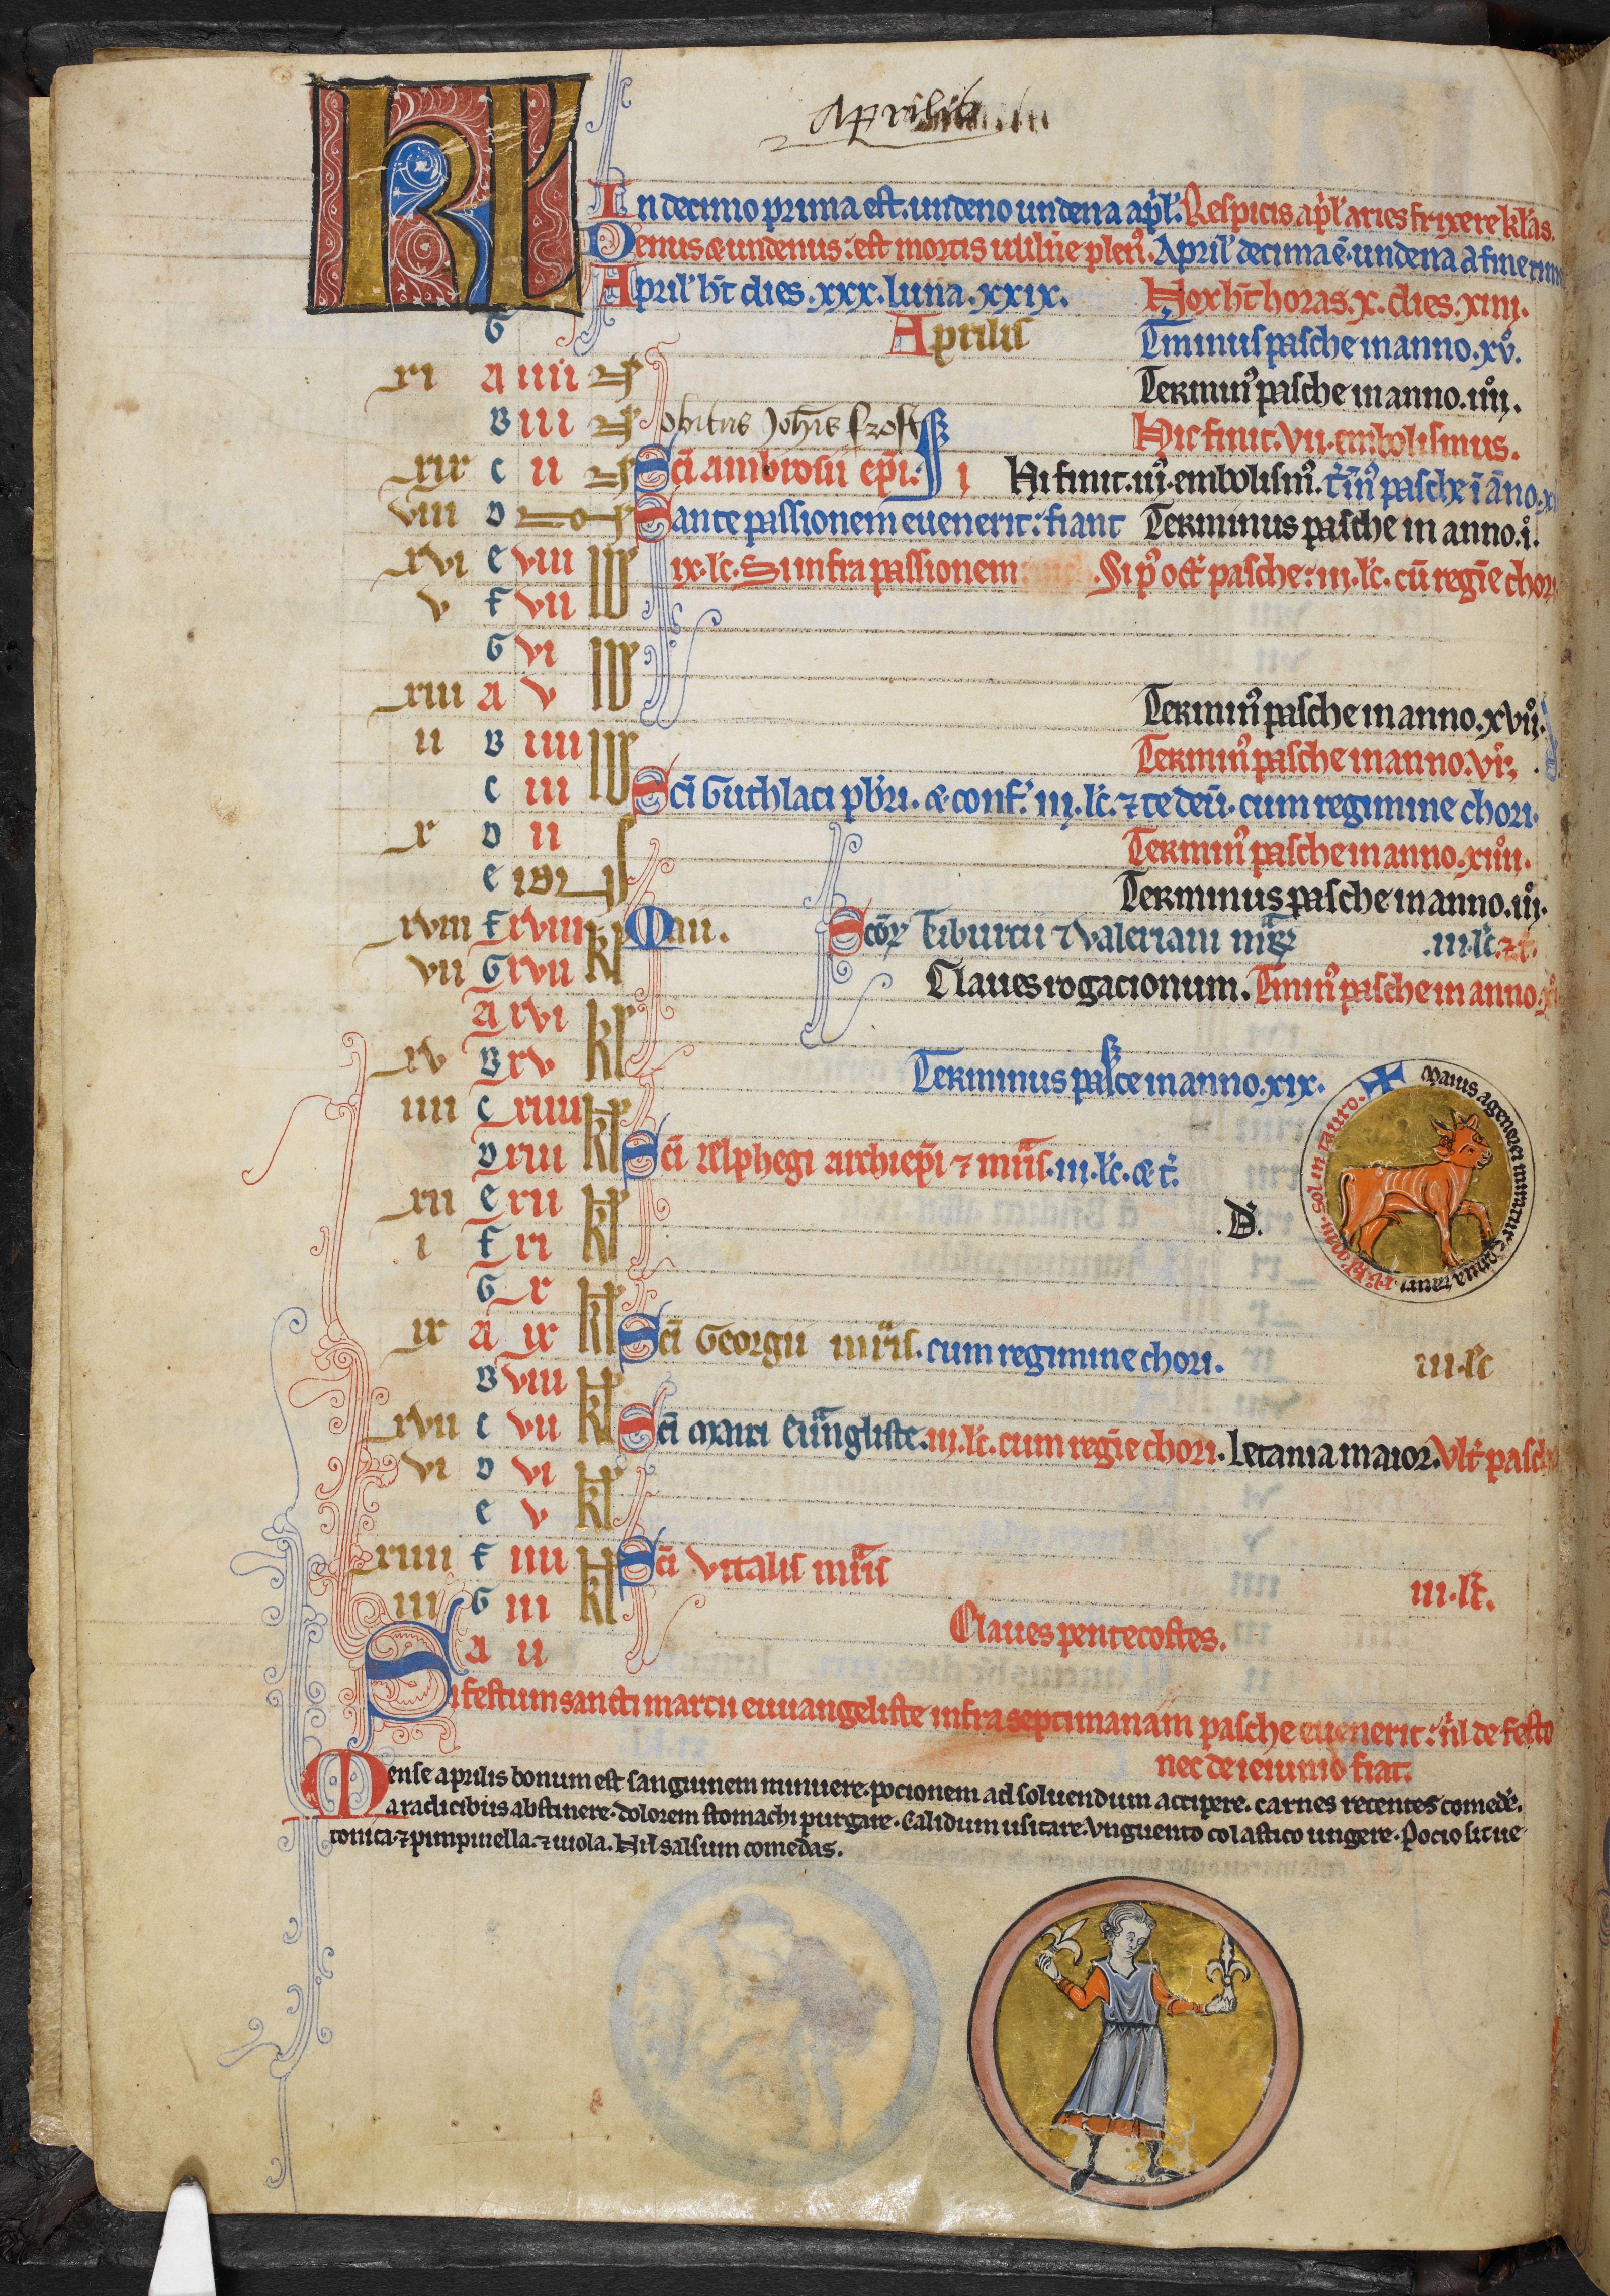 Aprilis
KL
In decimo prima est. undeno undena ap̄l'. Respicis ap̄l' aries frixee kl'as.
Denus & undenus: est mortis uuln̄e plen⁹. April' decima ē. undena a fine
April' h̄t dies. xxx. luna. xxix. Nox h̄t horas. x. dies. xiiii.
G Aprilis T̄minus pasche in anno. xv°.
xi A iiii N Termin⁹ pasche in anno. iiii°.
B iii N obitus Joh̄is frost Hic finit. vii. embolismus.
xix c ii N Sc̄i ambrosii ep̄i: Hi finit. iii⁹. embolism⁹. t̄m̄⁹ pasche ī āno.
viii D NON S ante passionem euenerit: fiant Terminus pasche in anno. i°.
xvi e viii ID ix. lc̄. Si infra passionem Si p⁹ oct' pasche: iii. lc̄. cū regīe chori
v f vii ID
G vi ID
xiii A v ID Termin⁹ pasche in anno. xvii°.
ii B iiii ID Termin⁹ pasche in anno. vi°.
c iii ID Sc̄i Guthlaci pb̄ri. & conf'. iii. lc̄. ⁊ te deū. cum regimine chori.
x D ii Termin⁹ pasche in anno. xiiii°.
e IDUS Terminus pasche in anno. iii°.
xviii f xviii kl Maii. Sc̄oꝝ Tiburtii ⁊ Valeriani mr̄ꝝ .iii. lc̄. ⁊ t'.
vii G xvii kl Claues rogacionum. T̄min⁹ pasche in anno.
A xvi kl
xv B xv kl Terminus pasce in anno. xix.
iiii c xiiii kl
D xiii kl Sc̄i Ælphegi archiep̄i ⁊ mr̄is. iii. lc̄. & t'.
xii e xii kl
i f xi kl .D.
G x kl
ix A ix kl Sc̄i Georgii mr̄is. cum regimine chori. iii. lc̄
B viii kl
xvii c vii kl Sc̄i Marci Euangliste. iii. lc̄. cum regīe chori. Letania maior. Vlt' pasch
vi D vi kl
e v kl
xiiii f iiii kl Sc̄i Vitalis mr̄is
iii G iii kl iii. lc̄.
A ii Claues pentecostes.
Si festum sancti marcii euuangeliste infra septimanam pasche euenerit: nil de festo
nec de ieiunio fiat.
Mense aprilis bonum est sanguinem minuere. pocionem ad soluendum accipere. carnes recentes comede'.
a radicibus abstinere. dolorem stomachi purgare. Calidum usitare. Vnguento colastico ungere. Pocio sit ue
tonica. ⁊ pimpinella. ⁊ uiola. Nil salsum comedas.
Maius agenorei miratur cornua tauri. xv° kl' maii. sol in tauro.